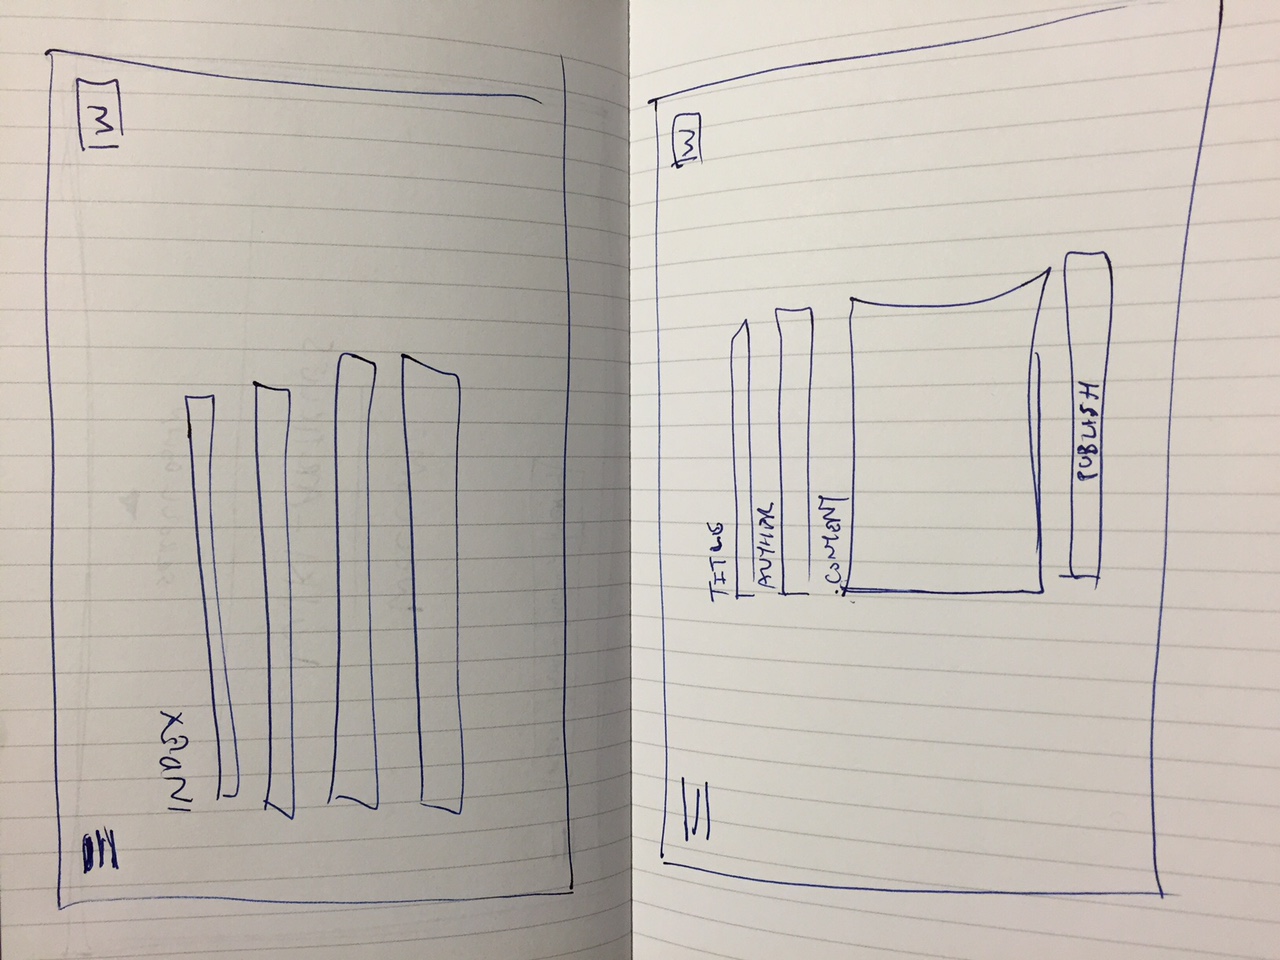 W
INDEX
W
TITLE
AUTHOR
CONTENT
PUBLISH